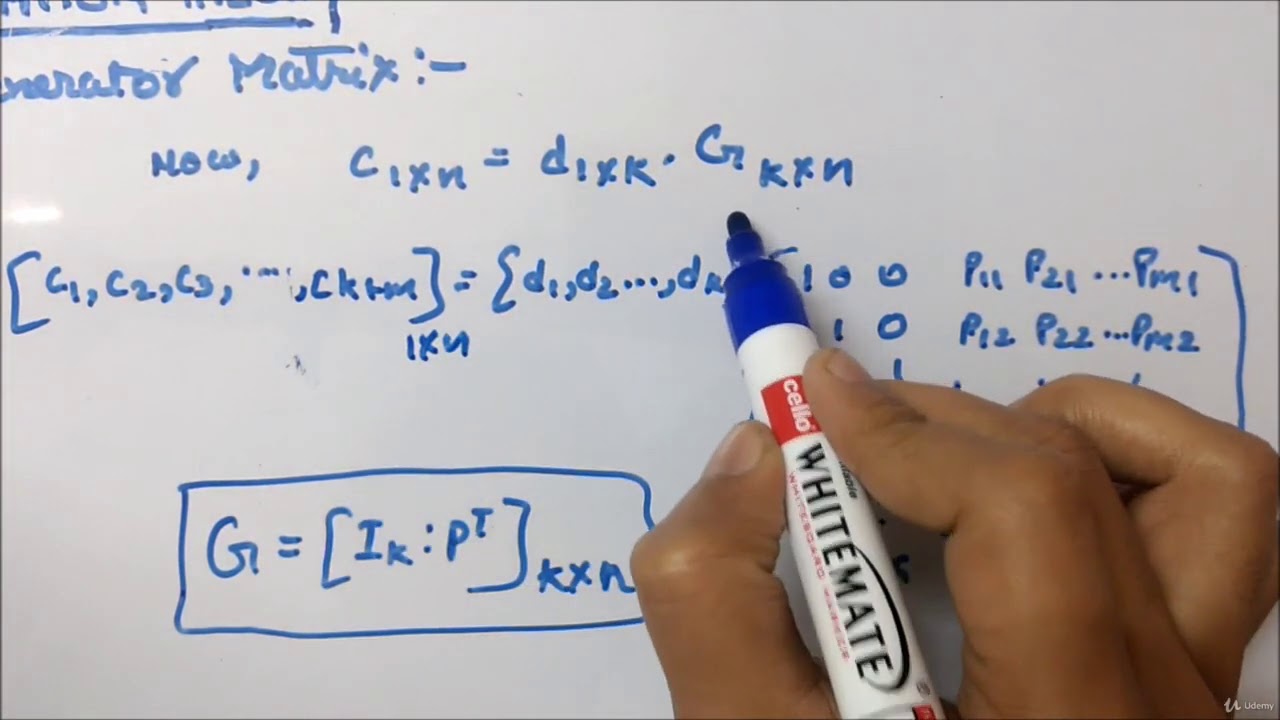 Matrix:-
Now, C1×n = d1×k · G k×n
[C1, C2, C3, ..., Ck+m] 1×n = {d1, d2 ..., dk 1 0 0 P11 P21 ... Pm1
1 0 P12 P22 ... Pm2
1
G = [Ik : P^T] k×n
cello
WHITEMATE
Udemy